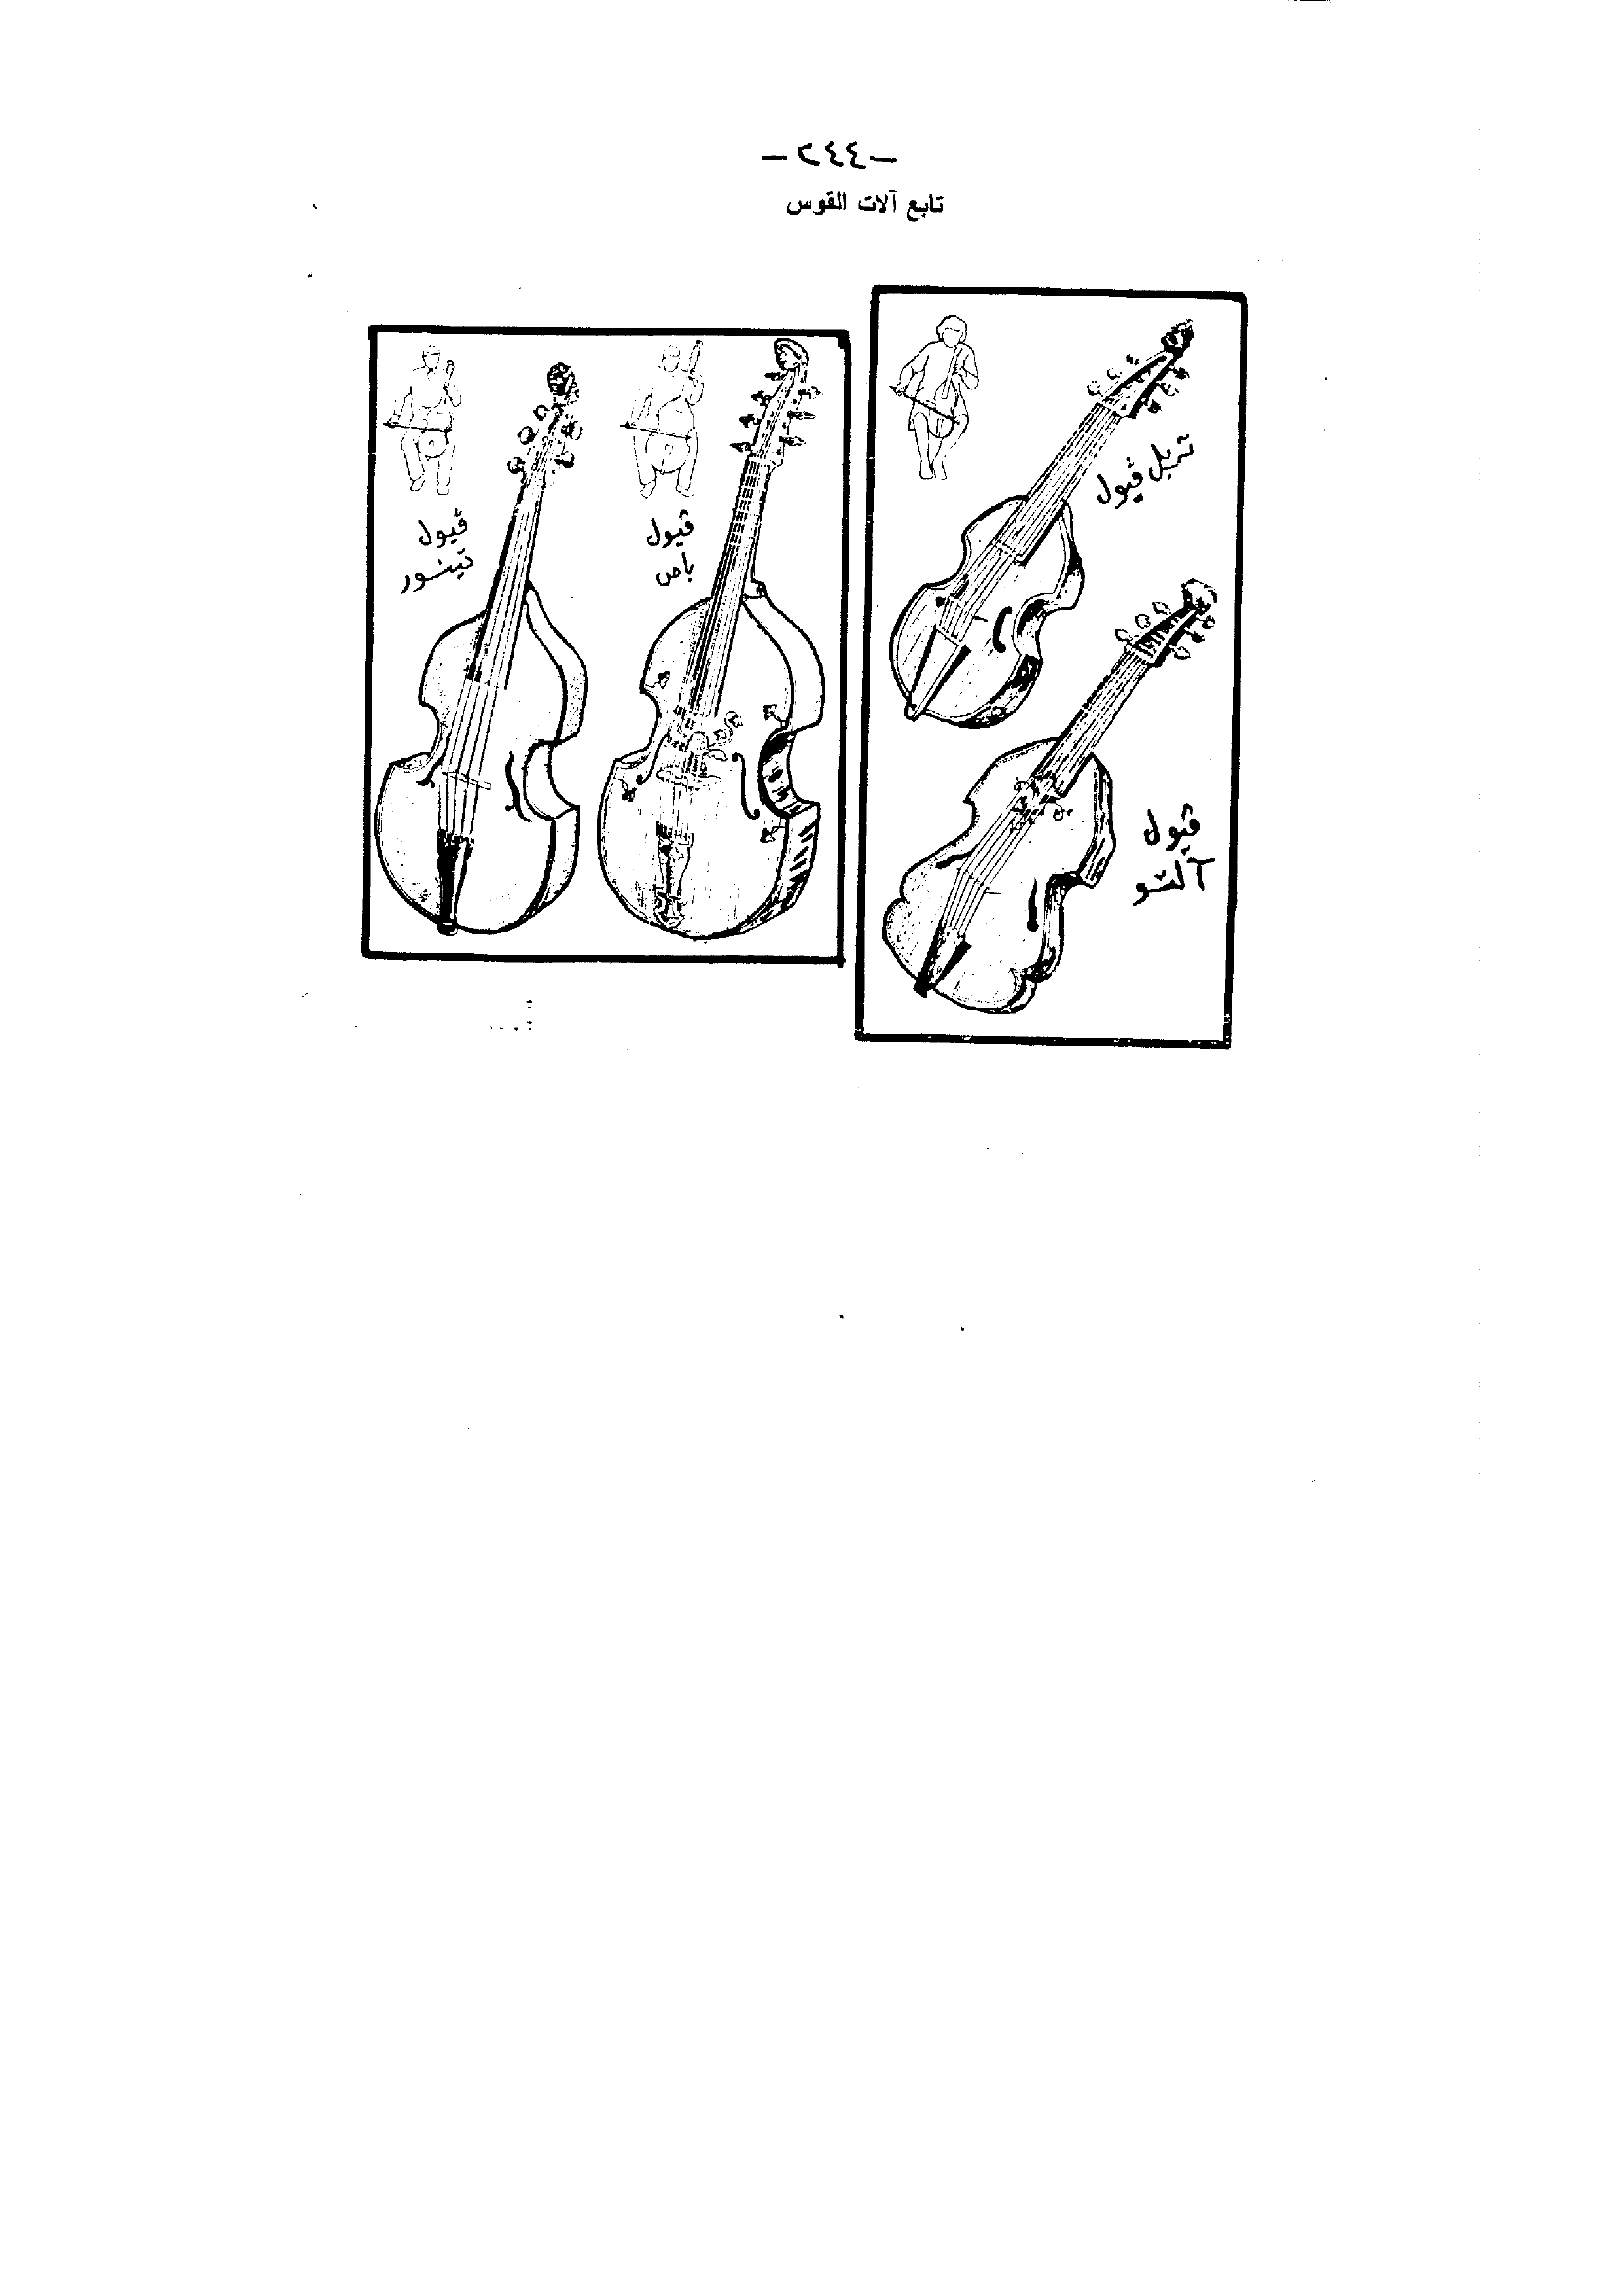 -٢٤٤-
تابع آلات القوس
تربل ڤيول
ڤيول
آلتو
ڤيول
باص
ڤيول
تينور